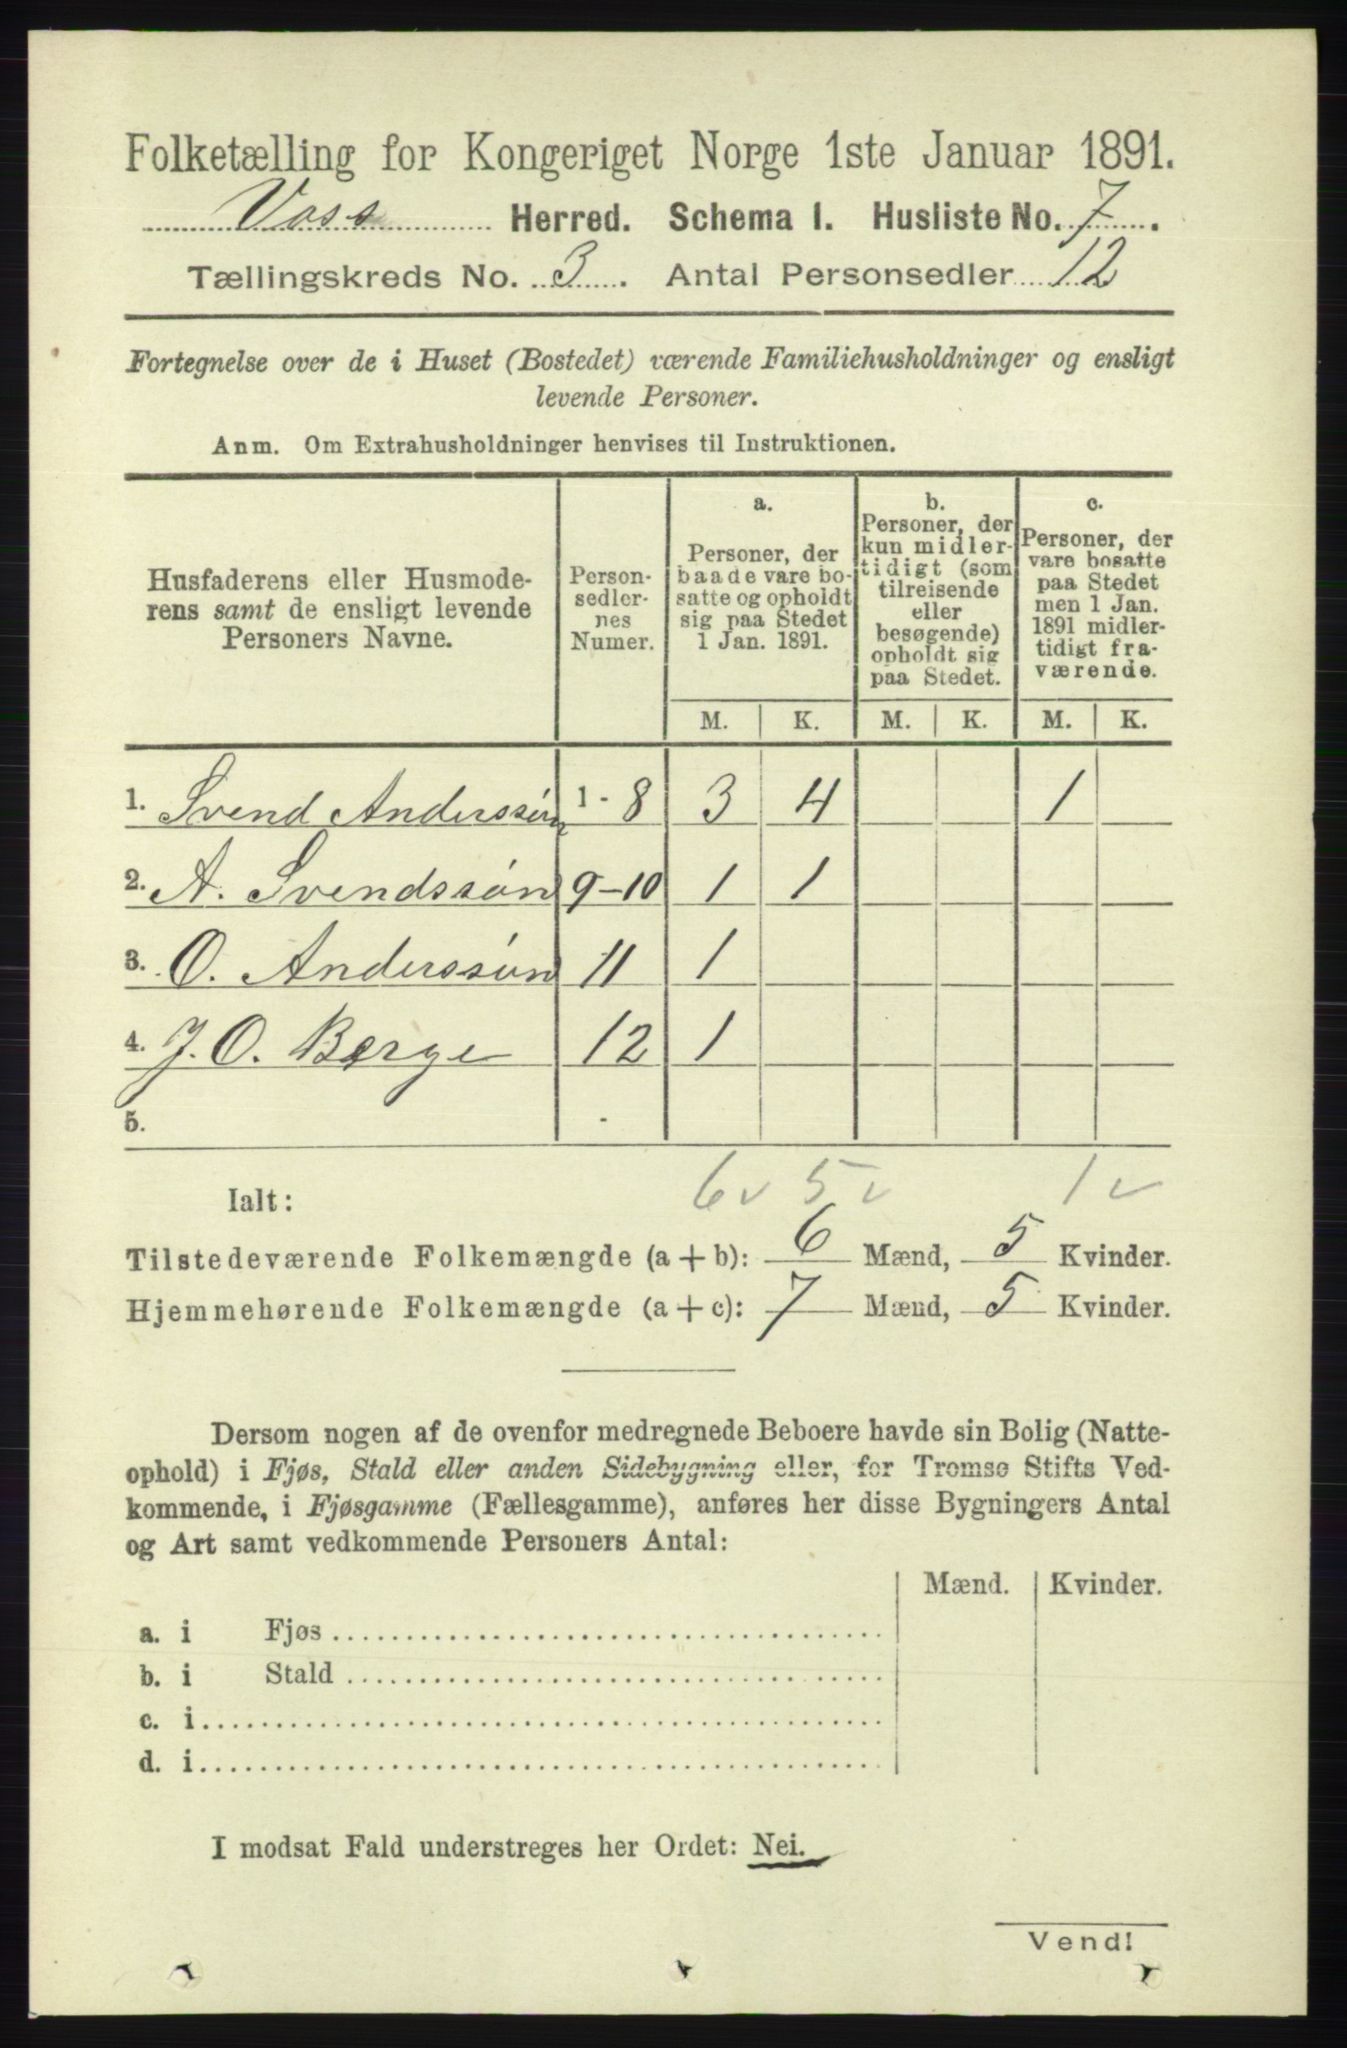 Folketælling for Kongeriget Norge 1ste Januar 1891.
Voss Herred. Schema I. Husliste No. 7.
Tællingskreds No. 3. Antal Personsedler 12
Fortegnelse over de i Huset (Bostedet) værende Familiehusholdninger og ensligt
levende Personer.
Anm. Om Extrahusholdninger henvises til Instruktionen.
Husfaderens eller Husmode-
rens samt de ensligt levende
Personers Navne.
Person-
sedler-
nes
Numer.
a.
Personer, der
baade vare bo-
satte og opholdt
sig paa Stedet
1 Jan. 1891.
b.
Personer, der
kun midler-
tidigt (som
tilreisende
eller
besøgende)
opholdt sig
paa Stedet.
c.
Personer, der
vare bosatte
paa Stedet
men 1 Jan.
1891 midler-
tidigt fra-
værende.
M. K. M. K. M. K.
1. Svend Anderssøn 1-8 3 4 1
2. A. Svendssøn 9-10 1 1
3. O. Anderssøn 11 1
4. J. O. Børge 12 1
5. -
Ialt: 6 v 5 v 1 v
Tilstedeværende Folkemængde (a + b): 6 Mænd, 5 Kvinder.
Hjemmehørende Folkemængde (a + c): 7 Mænd, 5 Kvinder.
Dersom nogen af de ovenfor medregnede Beboere havde sin Bolig (Natte-
ophold) i Fjøs, Stald eller anden Sidebygning eller, for Tromsø Stifts Ved-
kommende, i Fjøsgamme (Fællesgamme), anføres her disse Bygningers Antal
og Art samt vedkommende Personers Antal:
Mænd. Kvinder.
a. i Fjøs
b. i Stald
c. i
d. i
I modsat Fald understreges her Ordet: Nei.
Vend!